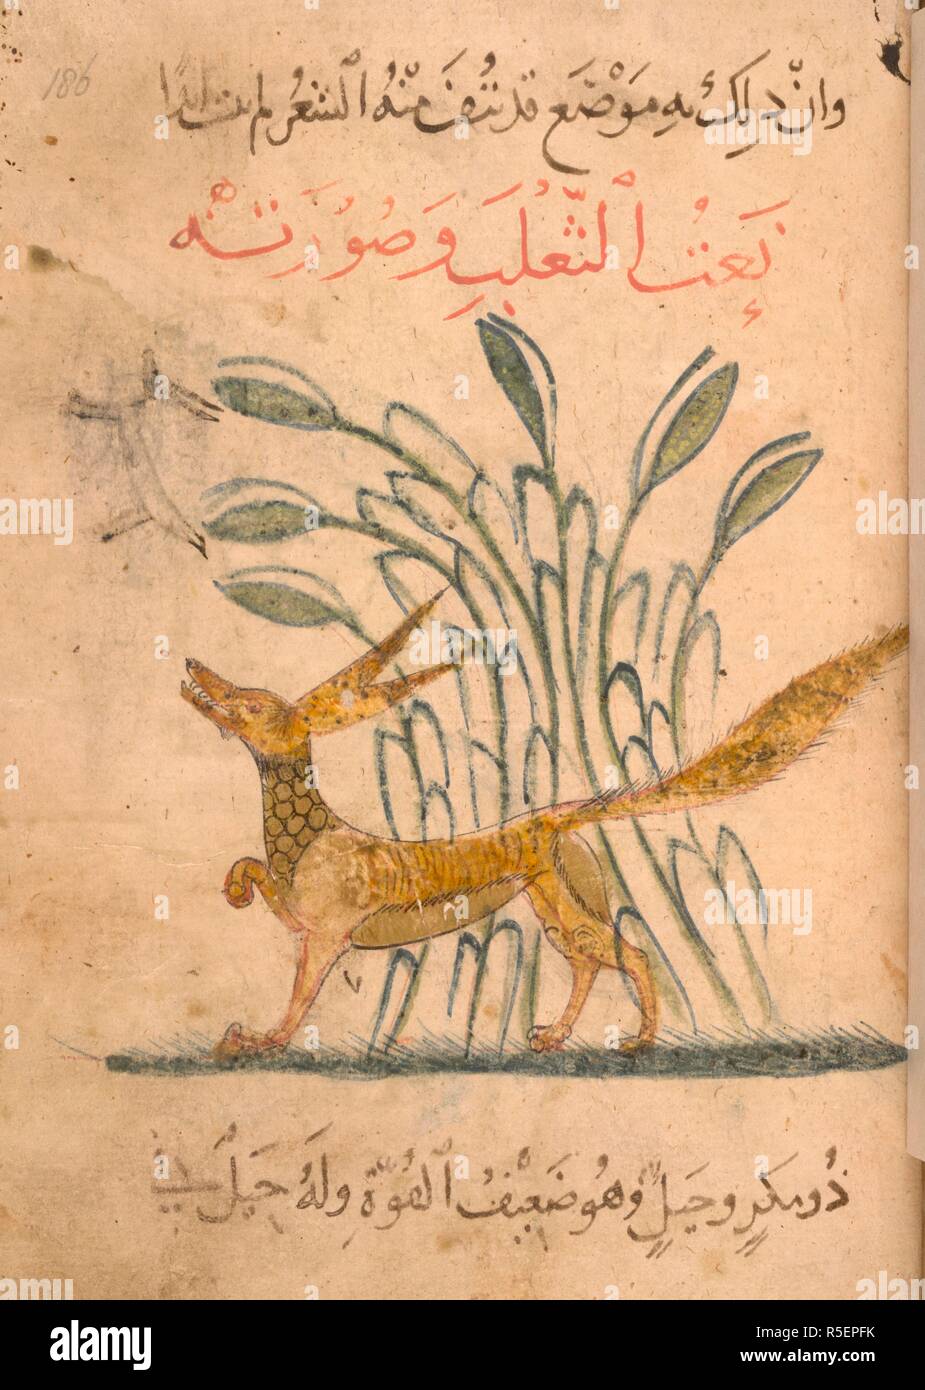 186
وان دلك به مَوْضَع قد نُتفَ مِنْهُ الشعرُ لم ينبت ابدا
نَعتُ الثّعْلَبِ وَصُورَتَهُ
ذُو مَكرٍ وحِيَلٍ وهُوَ ضَعيْفُ القُوّةِ ولهُ حِيَلُ في
alamy
Image ID: R5EPFK
www.alamy.com